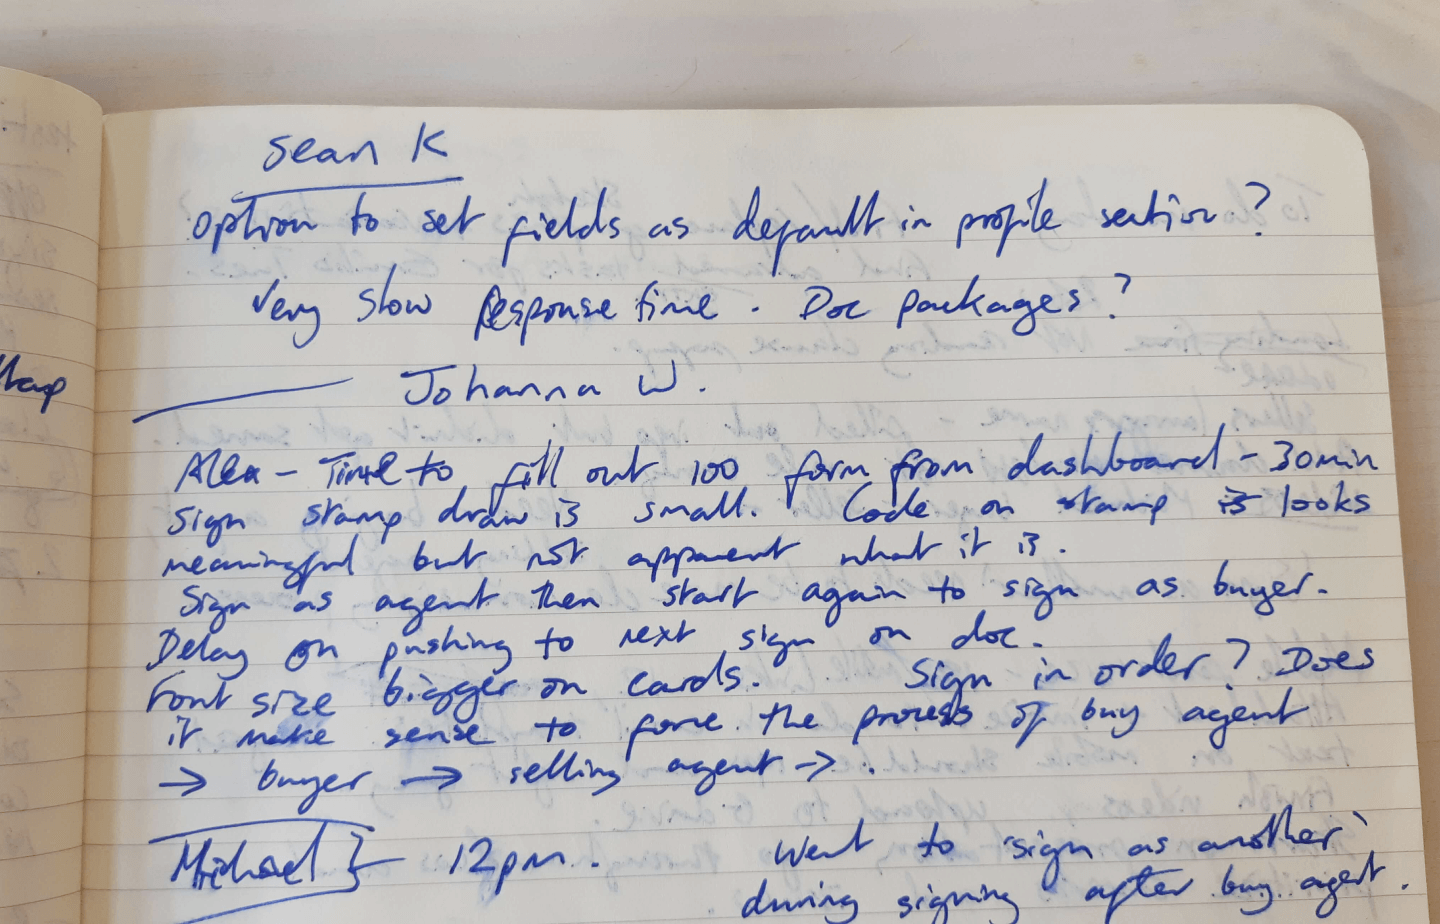 Sean K
option to set fields as default in profile section?
Very slow Response time. Doc packages?
Johanna W.
Alex - Time to fill out 100 form from dashboard - 30min
Sign stamp draw is small. Code on stamp is looks
meaningful but not apparent what it is.
Sign as agent then start again to sign as buyer.
Delay on pushing to next sign on doc.
Font size bigger on cards. Sign in order? Does
it make sense to force the process of buy agent
→ buyer → selling agent → .
Michael } 12pm. Went to 'sign as another'
during signing after buy agent.